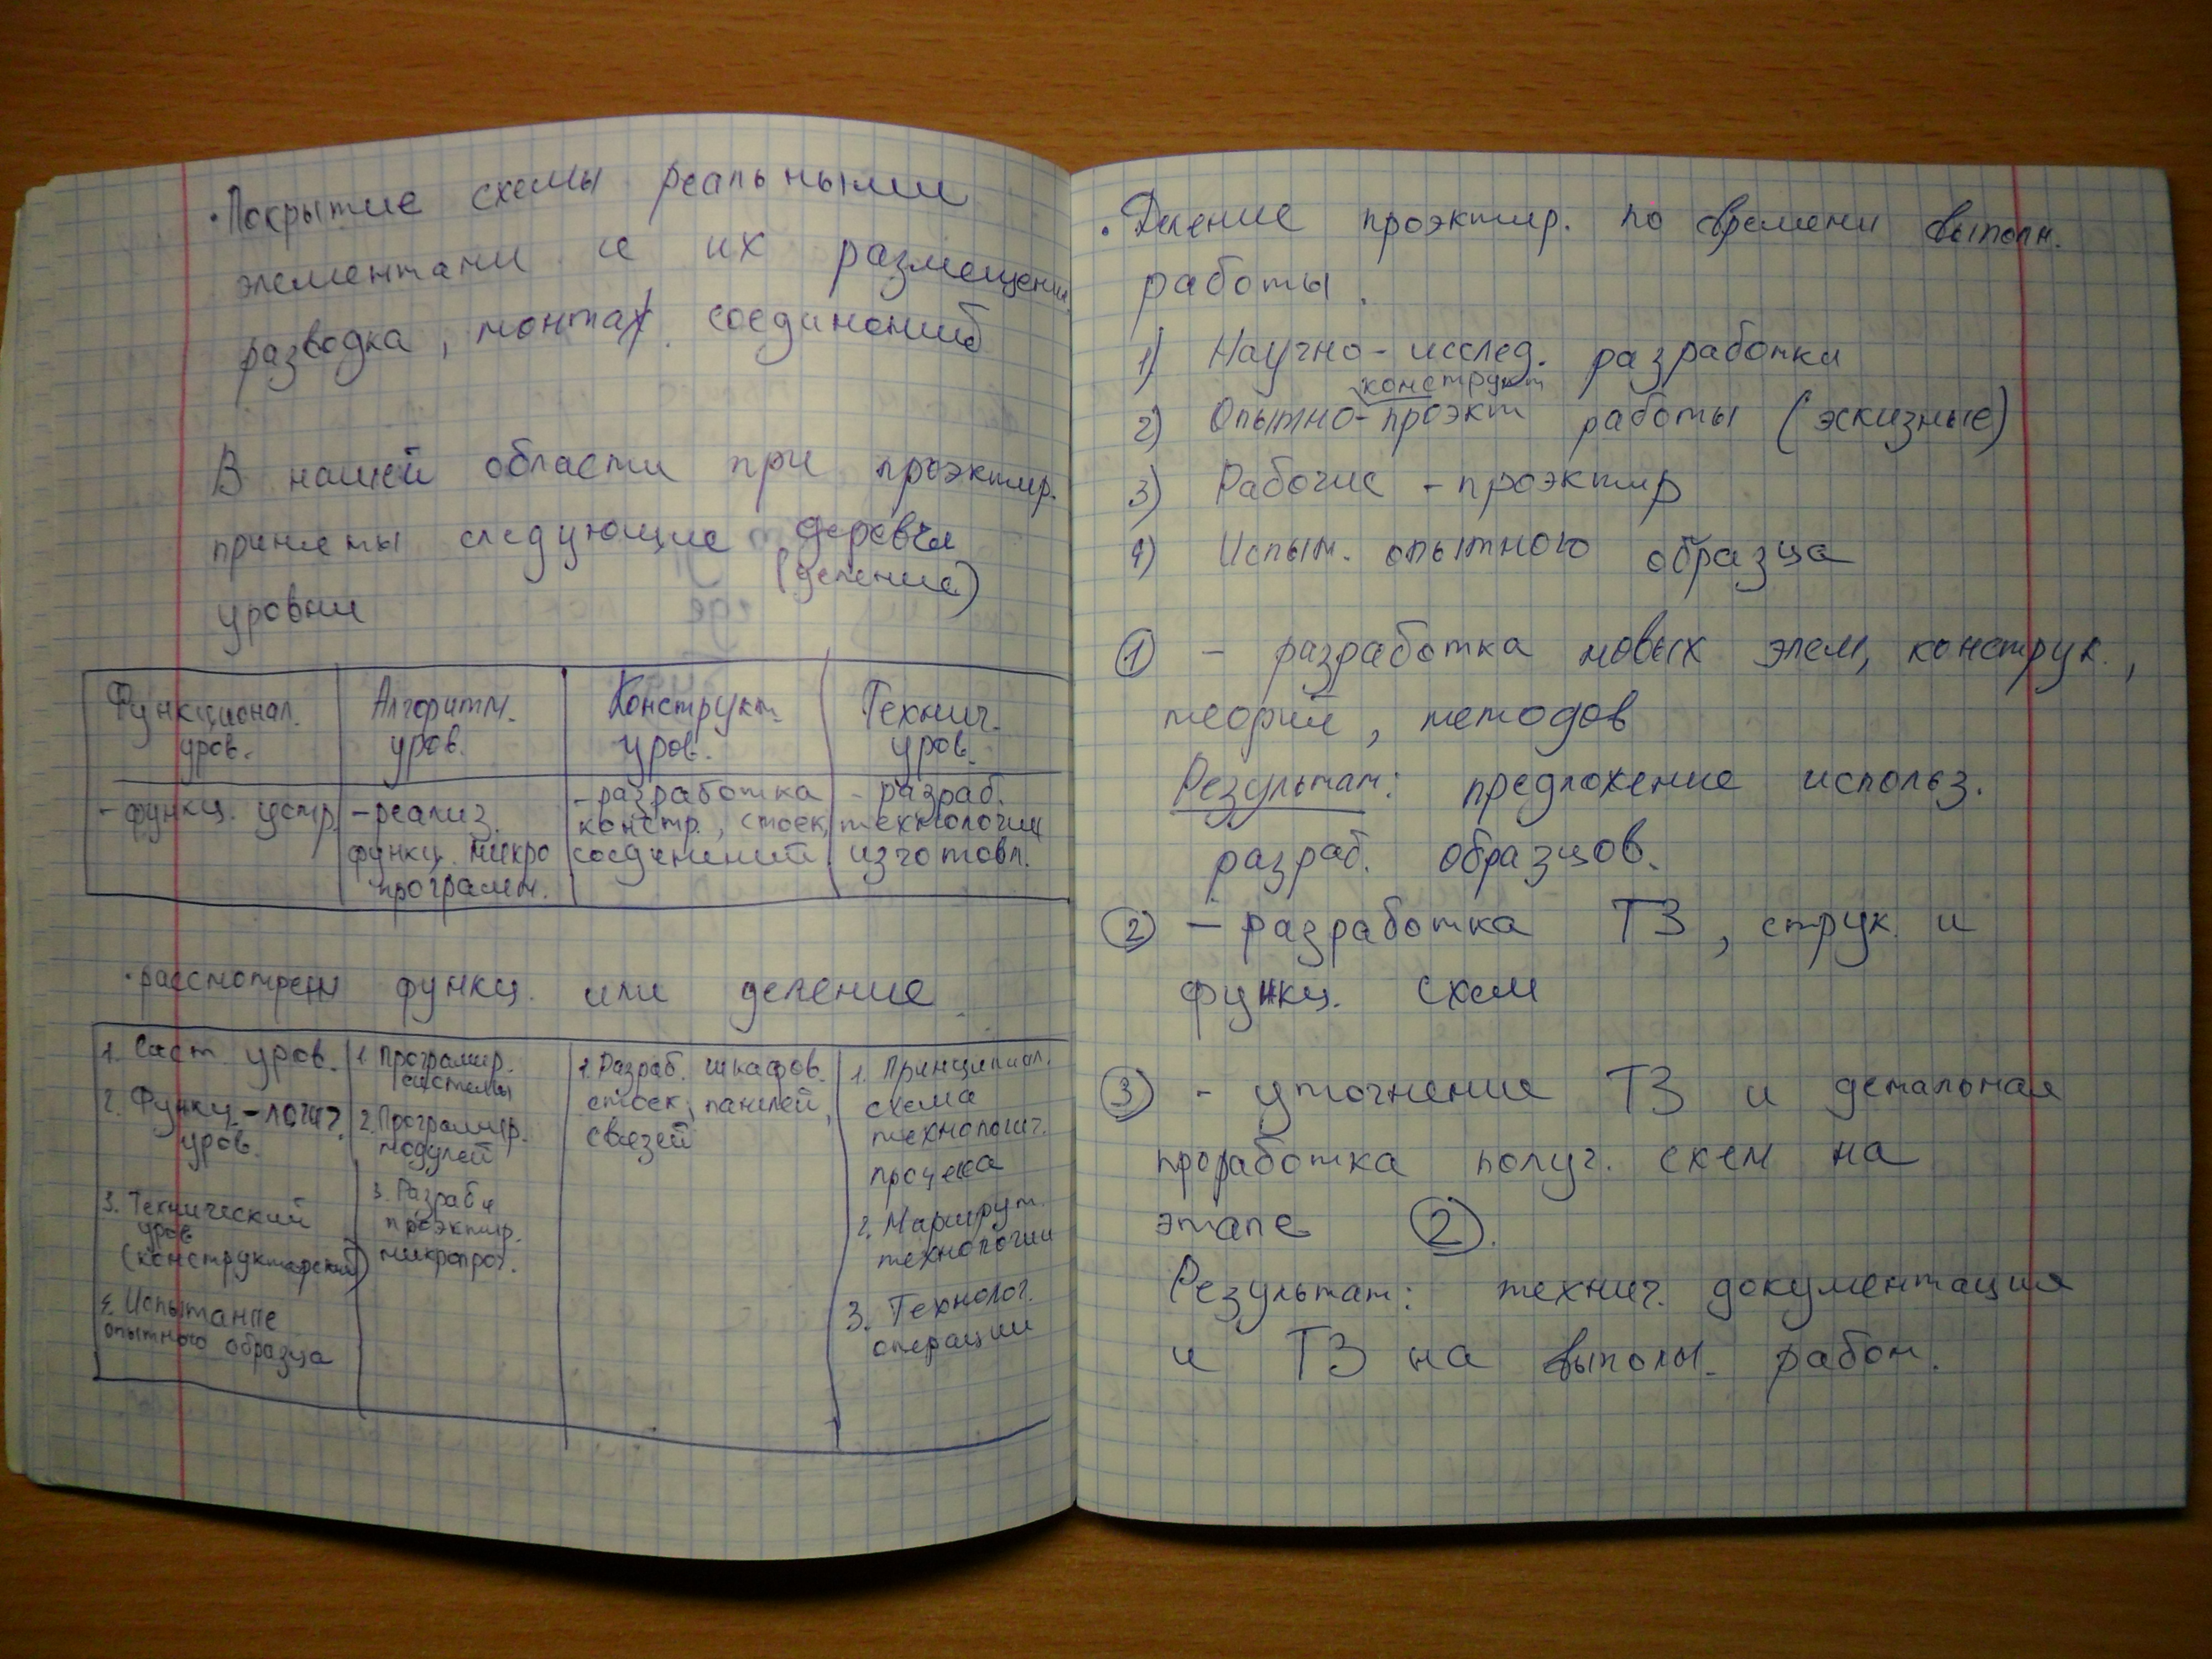 · Покрытие схемы реальными
элементами и их размещение
разводка, монтаж соединений
В нашей области при проэктир.
приняты следующие деревья
(деление)
уровни
Функционал. уров.
Алгоритм. уров.
Конструкт. уров.
Технич. уров.
- функц. устр.
- реализ.
функц. микро
програмн.
- разработка
констр., стоек,
соединений.
- разраб.
технологии
изготовл.
· рассмотрен функц. или деление
1. Сист. уров.
2. Функц. - логич.
уров.
3. Технический
уров
(конструкторский)
4. Испытание
опытного образца
1. Програмир.
системы
2. Програмир.
модулей
3. Разраб и
проэктир.
микропрог.
1. Разраб. шкафов.
стоек, панелей,
связей
1. Принципиал.
схема
технологич.
процесса
2. Маршрут.
технологии
3. Технолог.
операции
· Деление проэктир. по времени выполн.
работы.
1) Научно - исслед. разработки
конструкт
2) Опытно - проэкт работы (эскизные)
3) Рабочие - проэктир
4) Испыт. опытного образца
① - разработка новых элем, конструк.,
теорий, методов
Результат: предложение использ.
разраб. образцов.
② - разработка ТЗ, струк. и
функц. схем
③ - уточнение ТЗ и детальная
проработка получ. схем на
этапе ②.
Результат: технич. документация
и ТЗ на выполн. работ.